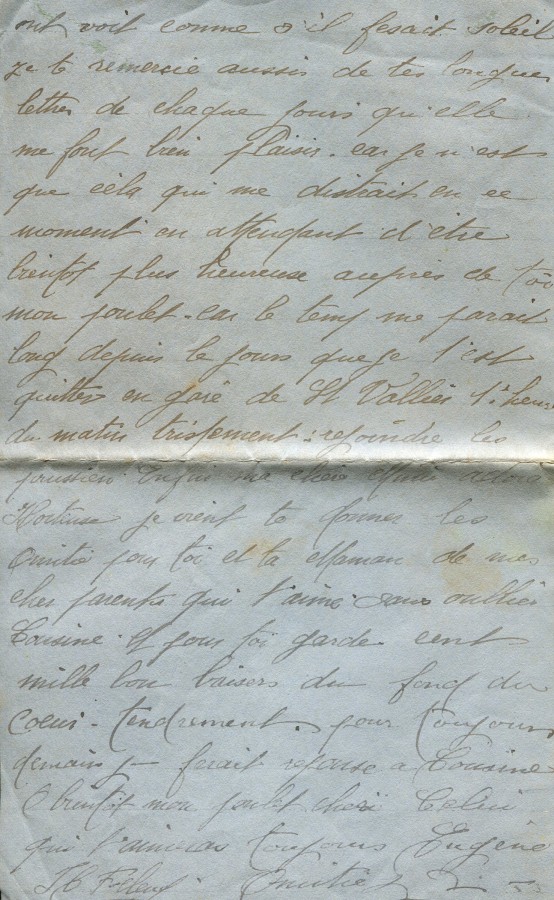 ont voit comme s'il fesait soleil
je te remercie aussis de tes longues
lettre de chaque jours qu'elle
me font bien plaisir. car je n'est
que cèla qui me distrait en ce
moment en attendant d'être
bientot plus heureuse auprès de toi
mon poulet. car le temp me parait
long depuis le jours que je t'est
quitter en gare de St Vallier 1h heure
du matin trissement: rejoindre les
Enfin ma chère Amie adorée
Hortense je vient te donner les
Amitié pour toi et ta Maman de mes
cher parents qui t'aime sans oublier
Cousine. Et pour toi garde cent
mille bon baisers du fond du
coeur. tendrement. pour toujours
demain je ferait reponse a Cousine
A bientôt mon poulet chéri Celui
qui t'aimeras toujours Eugène
Amitié